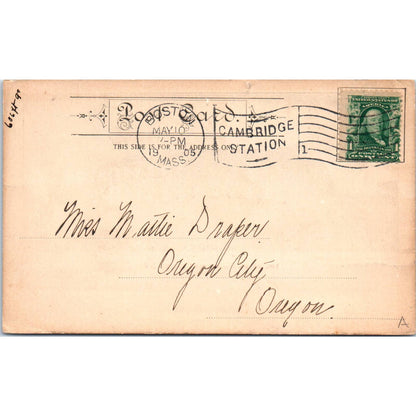 Post Card.
BOSTON
MAY 10
7-PM
19 05
MASS.
CAMBRIDGE
STATION
1
THIS SIDE IS FOR THE ADDRESS ONLY
Miss Mattie Draper
Oregon City
Oregon.
A